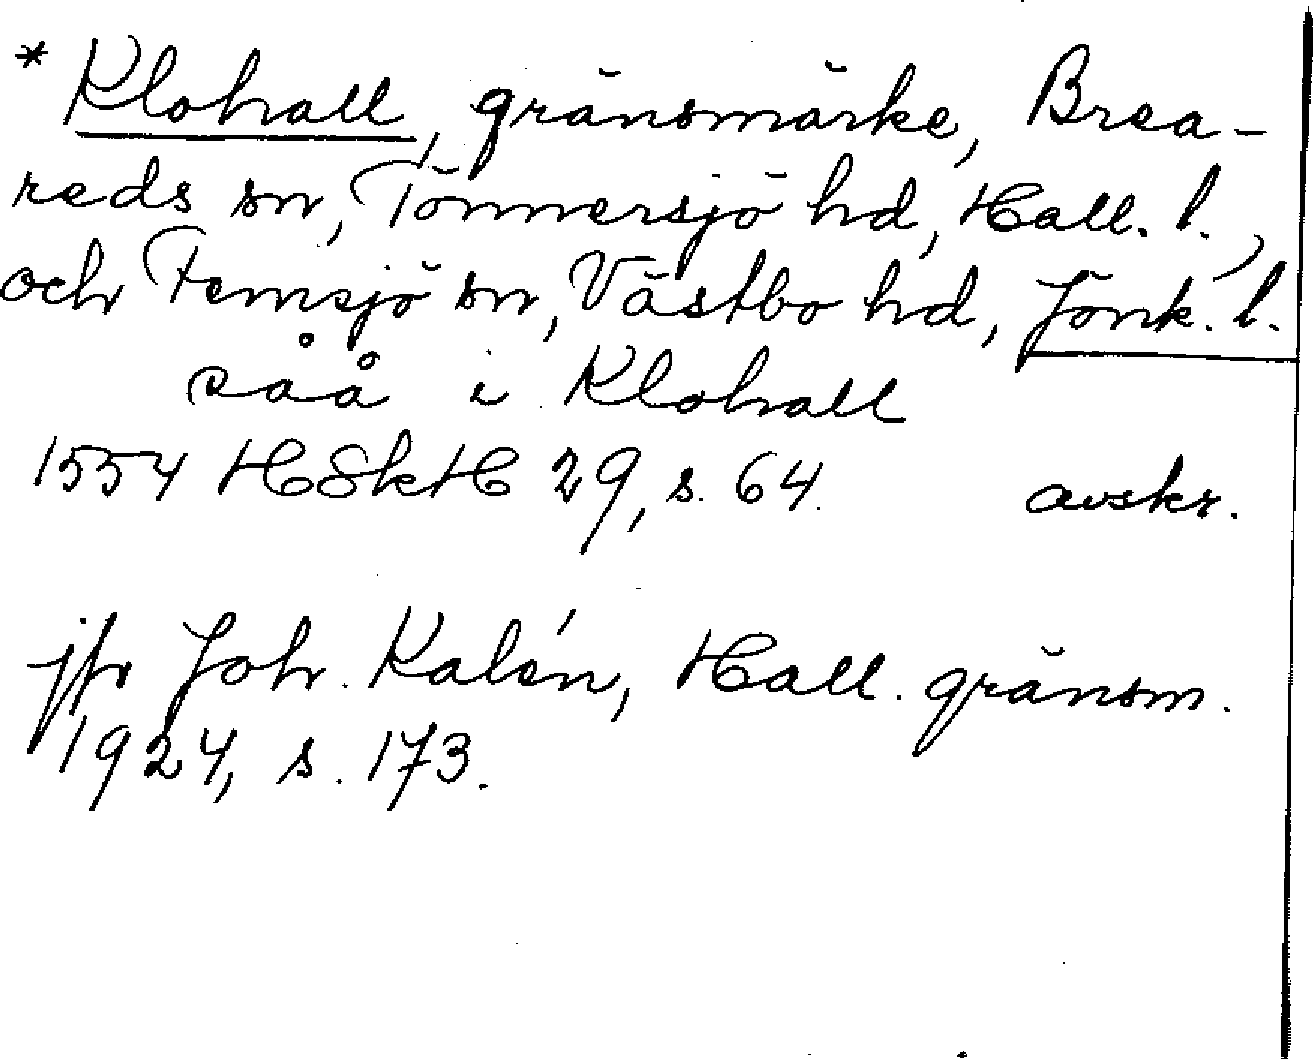 * Klohall, gränsmärke, Brea-
reds sn, Tönnersjö hd, Hall. l.,
och Femsjö sn, Västbo hd, Jönk. l.
såå i Klohall
1554 HSkH 29, s. 64. avskr.
jfr Joh. Kalén, Hall. gränsm.
1924, s. 173.